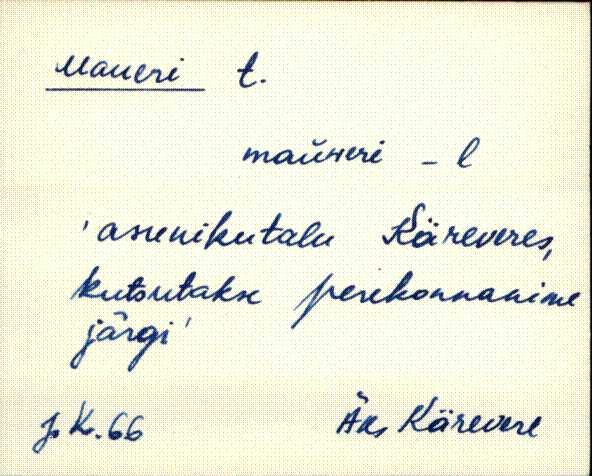 Maueri t.
maŭweri - l
'asunikutalu Käreveres,
kutsutakse perekonnanime
järgi'
J. K. 66 Äks Kärevere